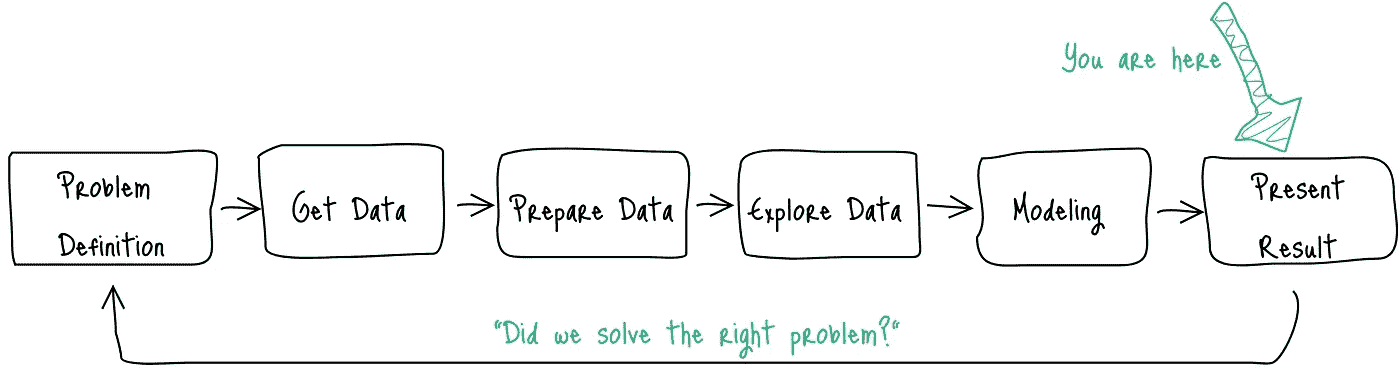 You are here
Problem
Definition
Get Data
Prepare Data
Explore Data
Modeling
Present
Result
"Did we solve the right problem?"